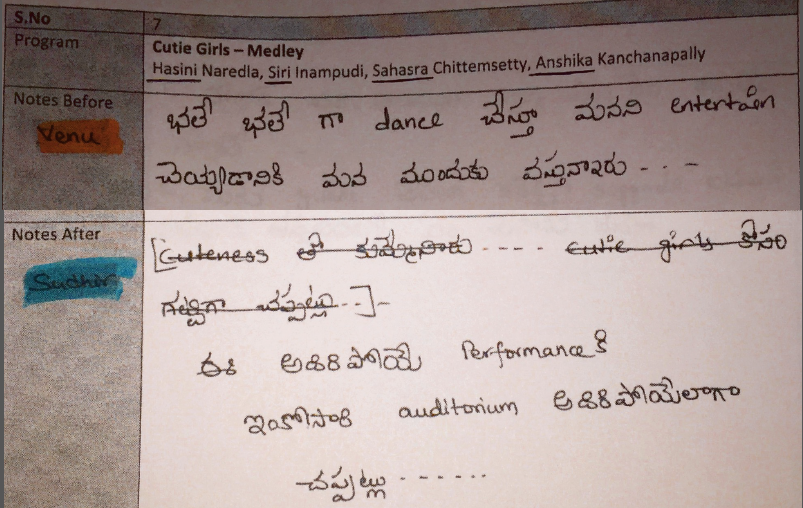 S.No 7
Program Cutie Girls – Medley
Hasini Naredla, Siri Inampudi, Sahasra Chittemsetty, Anshika Kanchanapally
Notes Before భలే భలే గా dance చేస్తూ మనని entertain
Venu చెయ్యడానికి మన ముందుకు వస్తున్నారు - - -
Notes After [Cuteness తో కుమ్మేసారు - - - - cutie girls కోసం
Sudhir గట్టిగా చప్పట్లు - - ]-
ఈ అదిరిపోయే Performance కి
ఇంకోసారి auditorium అదిరిపోయేలాగా
చప్పట్లు - - - - - -